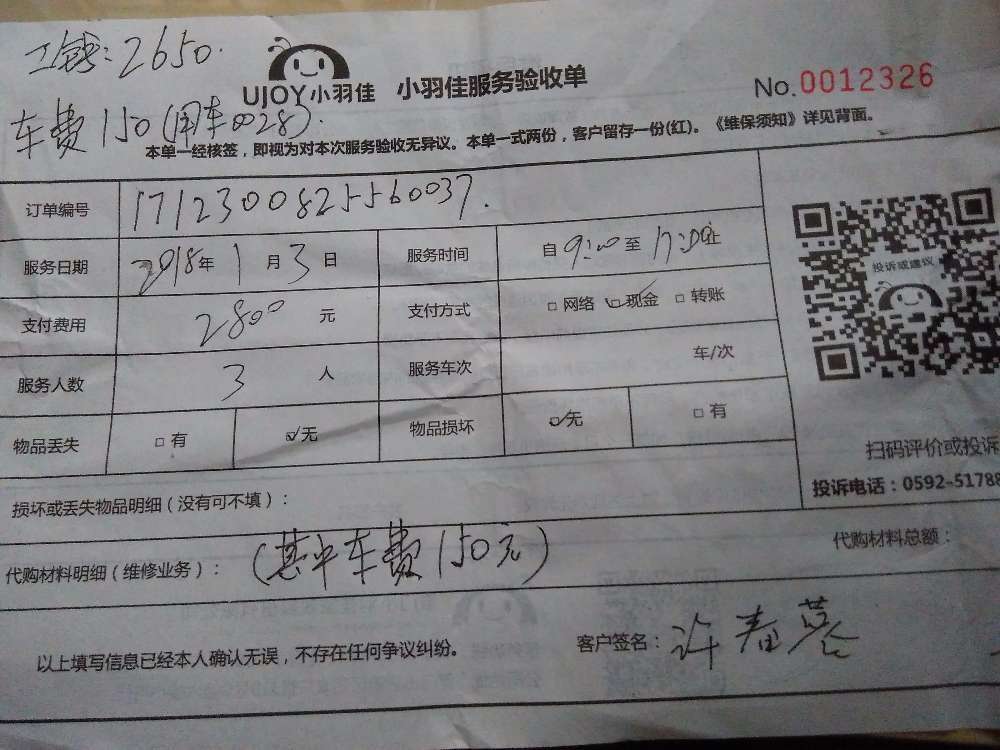 工钱：2650.
UJOY小羽佳 小羽佳服务验收单
No.0012326
车费150(用车0028).
本单一经核签，即视为对本次服务验收无异议。本单一式两份，客户留存一份(红)。《维保须知》详见背面。
订单编号 1712300825560037.
服务日期 2018年1月3日 服务时间 自9:00至17:00止
支付费用 2800 元 支付方式 □网络 ☑现金 □转账
服务人数 3 人 服务车次 车/次
物品丢失 □有 ☑无 物品损坏 ☑无 □有
投诉或建议
扫码评价或投诉
投诉电话：0592-51788
损坏或丢失物品明细（没有可不填）：
代购材料明细（维修业务）： (其中车费150元) 代购材料总额：
以上填写信息已经本人确认无误，不存在任何争议纠纷。 客户签名：许春